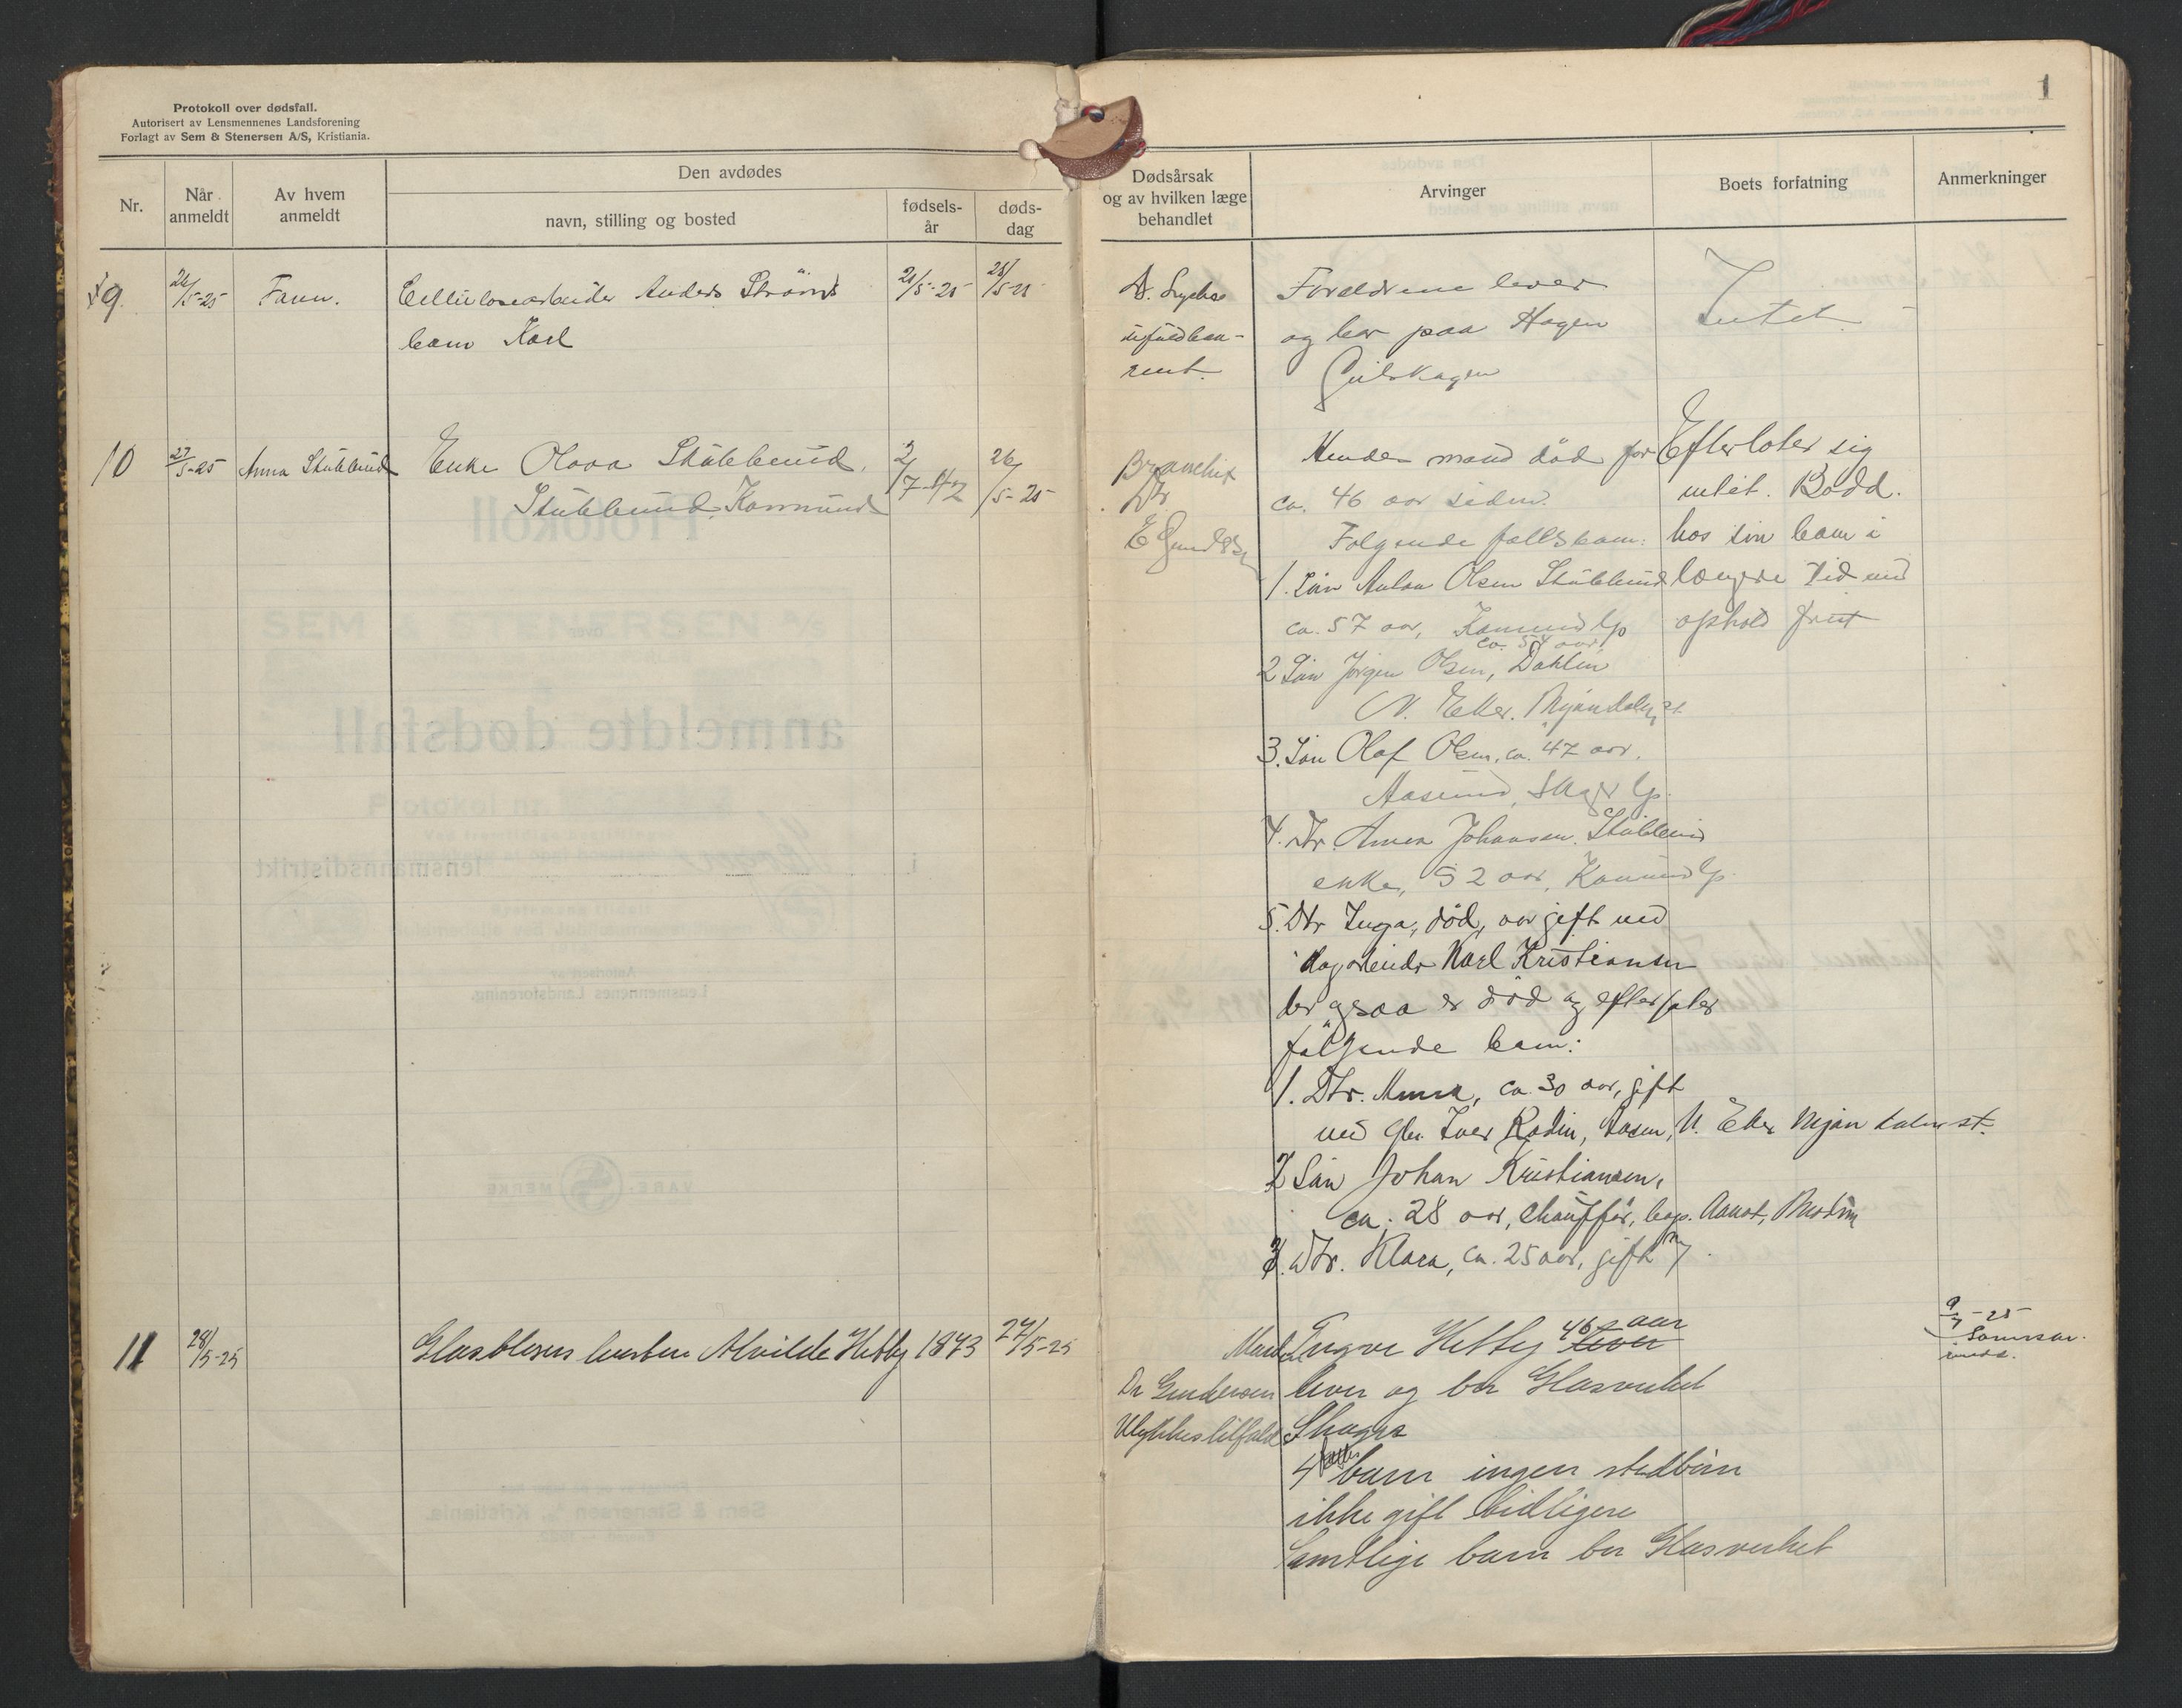 Protokoll over dødsfall.
Autorisert av Lensmennenes Landsforening
Forlagt av Sem & Stenersen A/S, Kristiania.
1
Nr.
Når anmeldt
Av hvem anmeldt
Den avdødes
navn, stilling og bosted
fødselsår
dødsdag
Dødsårsak
og av hvilken læge
behandlet
Arvinger
Boets forfatning
Anmerkninger
9.
Cellulosearbeider Anders Ströms
barn Karl
Foreldrene lever
og bor paa Hagen
Intet
10
27/5-25
Anna Stubberud
Enke Olava Stubberud.
Stubberud, Konnerud
2/7-42
26/5-25
Bronchit
Dr.
E Gundersen
Hendes mand död for
ca. 46 aar siden.
Følgende fellsbarn:
1. Sön Anton Olsen Stubberud
ca. 57 aar, Konnerud
ca. 54 aar
2 Sön Jörgen Olsen, Dahlen
N. Eker. Mjöndalen st
3. Sön Olaf Olsen, ca. 47 aar.
Aaserud, Skoger
4. Dtr. Anna Johansen, Stubberud
enke, 52 aar, Konnerud
5. Dtr Inga, död, var gift med
Karl Kristiansen
der ogsaa er död og efterlater
fölgende barn:
1. Dtr. Anna, ca. 30 aar, gift
med Iver Rodin, Aasen, N. Eker Mjöndalen st.
2 Sön Johan Kristiansen,
ca. 28 aar, chaufför, Modum
3. Dtr. Klara, ca. 25 aar, gift
Efterlater sig
intet. Bodd
hos sin barn i
længere tid med
ophold frit
11
28/5-25
Glasblesers hustru Alvilde Hebby
1873
27/5-25
Dr Gundersen
Ulykkestilfelde
Mand Yngve Hebby 46 aar
lever
lever og bor Glasverket
Skoger
4 barn ingen stedbörn
ikke gift tidligere
Samtlige barn bor Glasverket
9/7-25